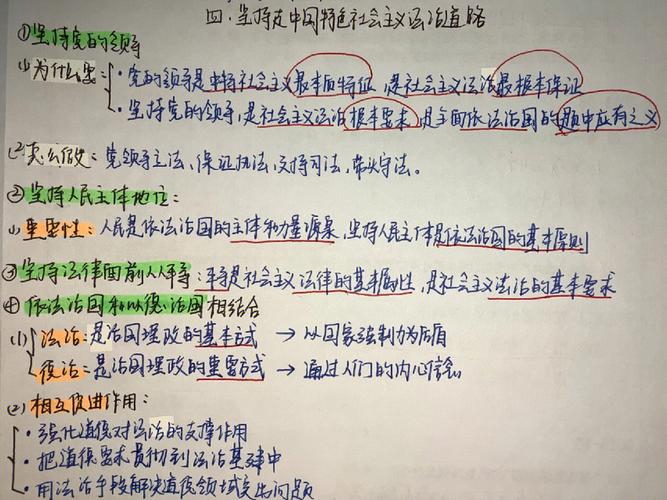 四.坚持走中国特色社会主义法治道路
①坚持党的领导
(1)为什么要:·党的领导是中特社会主义最本质特征,是社会主义法治最根本保证
·坚持党的领导,是社会主义法治根本要求,是全面依法治国的题中应有之义
(2)怎么做:党领导立法、保证执法、支持司法、带头守法。
②坚持人民主体地位:
(1)重要性:人民是依法治国的主体和力量源泉,坚持人民主体是依法治国的基本原则
③坚持法律面前人人平等:平等是社会主义法律的基本属性,是社会主义法治的基本要求
④依法治国和以德治国相结合
(1)法治:是治国理政的基本方式 → 以国家强制力为后盾
德治:是治国理政的重要方式 → 通过人们的内心信念
(2)相互促进作用:
·强化道德对法治的支撑作用
·把道德要求贯彻到法治建设中
·用法治手段解决道德领域突出问题